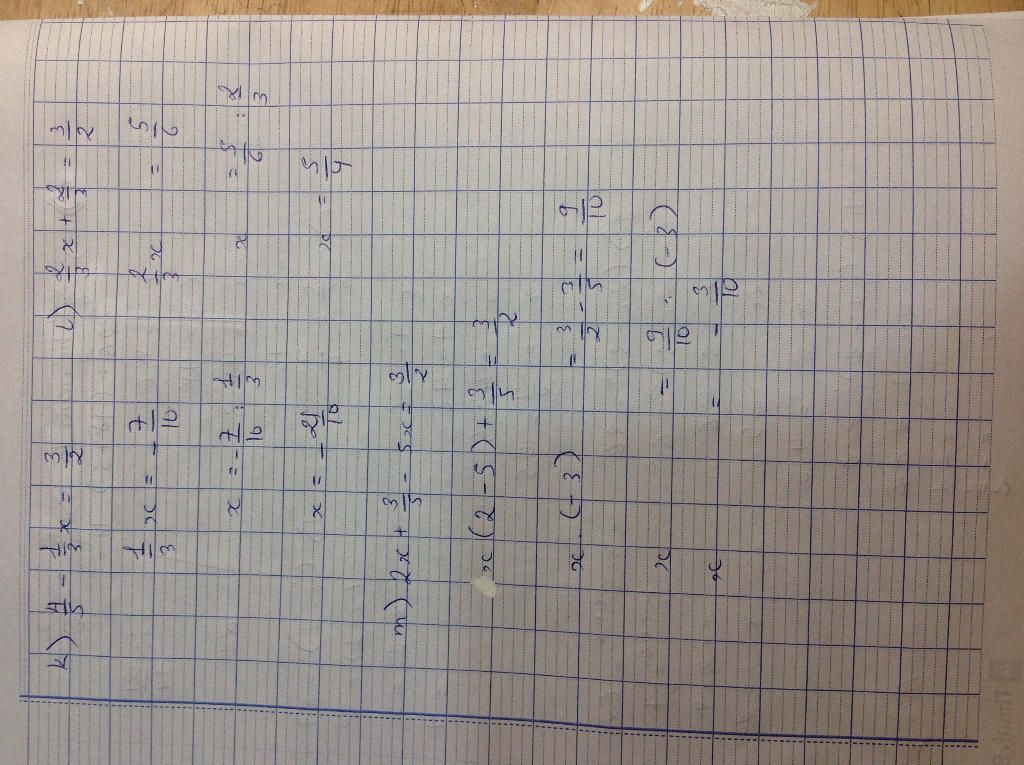 k) 4/5 - 1/3 x = 3/2
1/3 x = - 7/10
x = - 7/10 : 1/3
x = - 21/10
l) 2/3 x + 2/3 = 3/2
2/3 x = 5/6
x = 5/6 : 2/3
x = 5/4
m) 2x + 3/5 - 5x = 3/2
x (2 - 5) + 3/5 = 3/2
x . (-3) = 3/2 - 3/5 = 9/10
x = 9/10 : (-3)
x = - 3/10